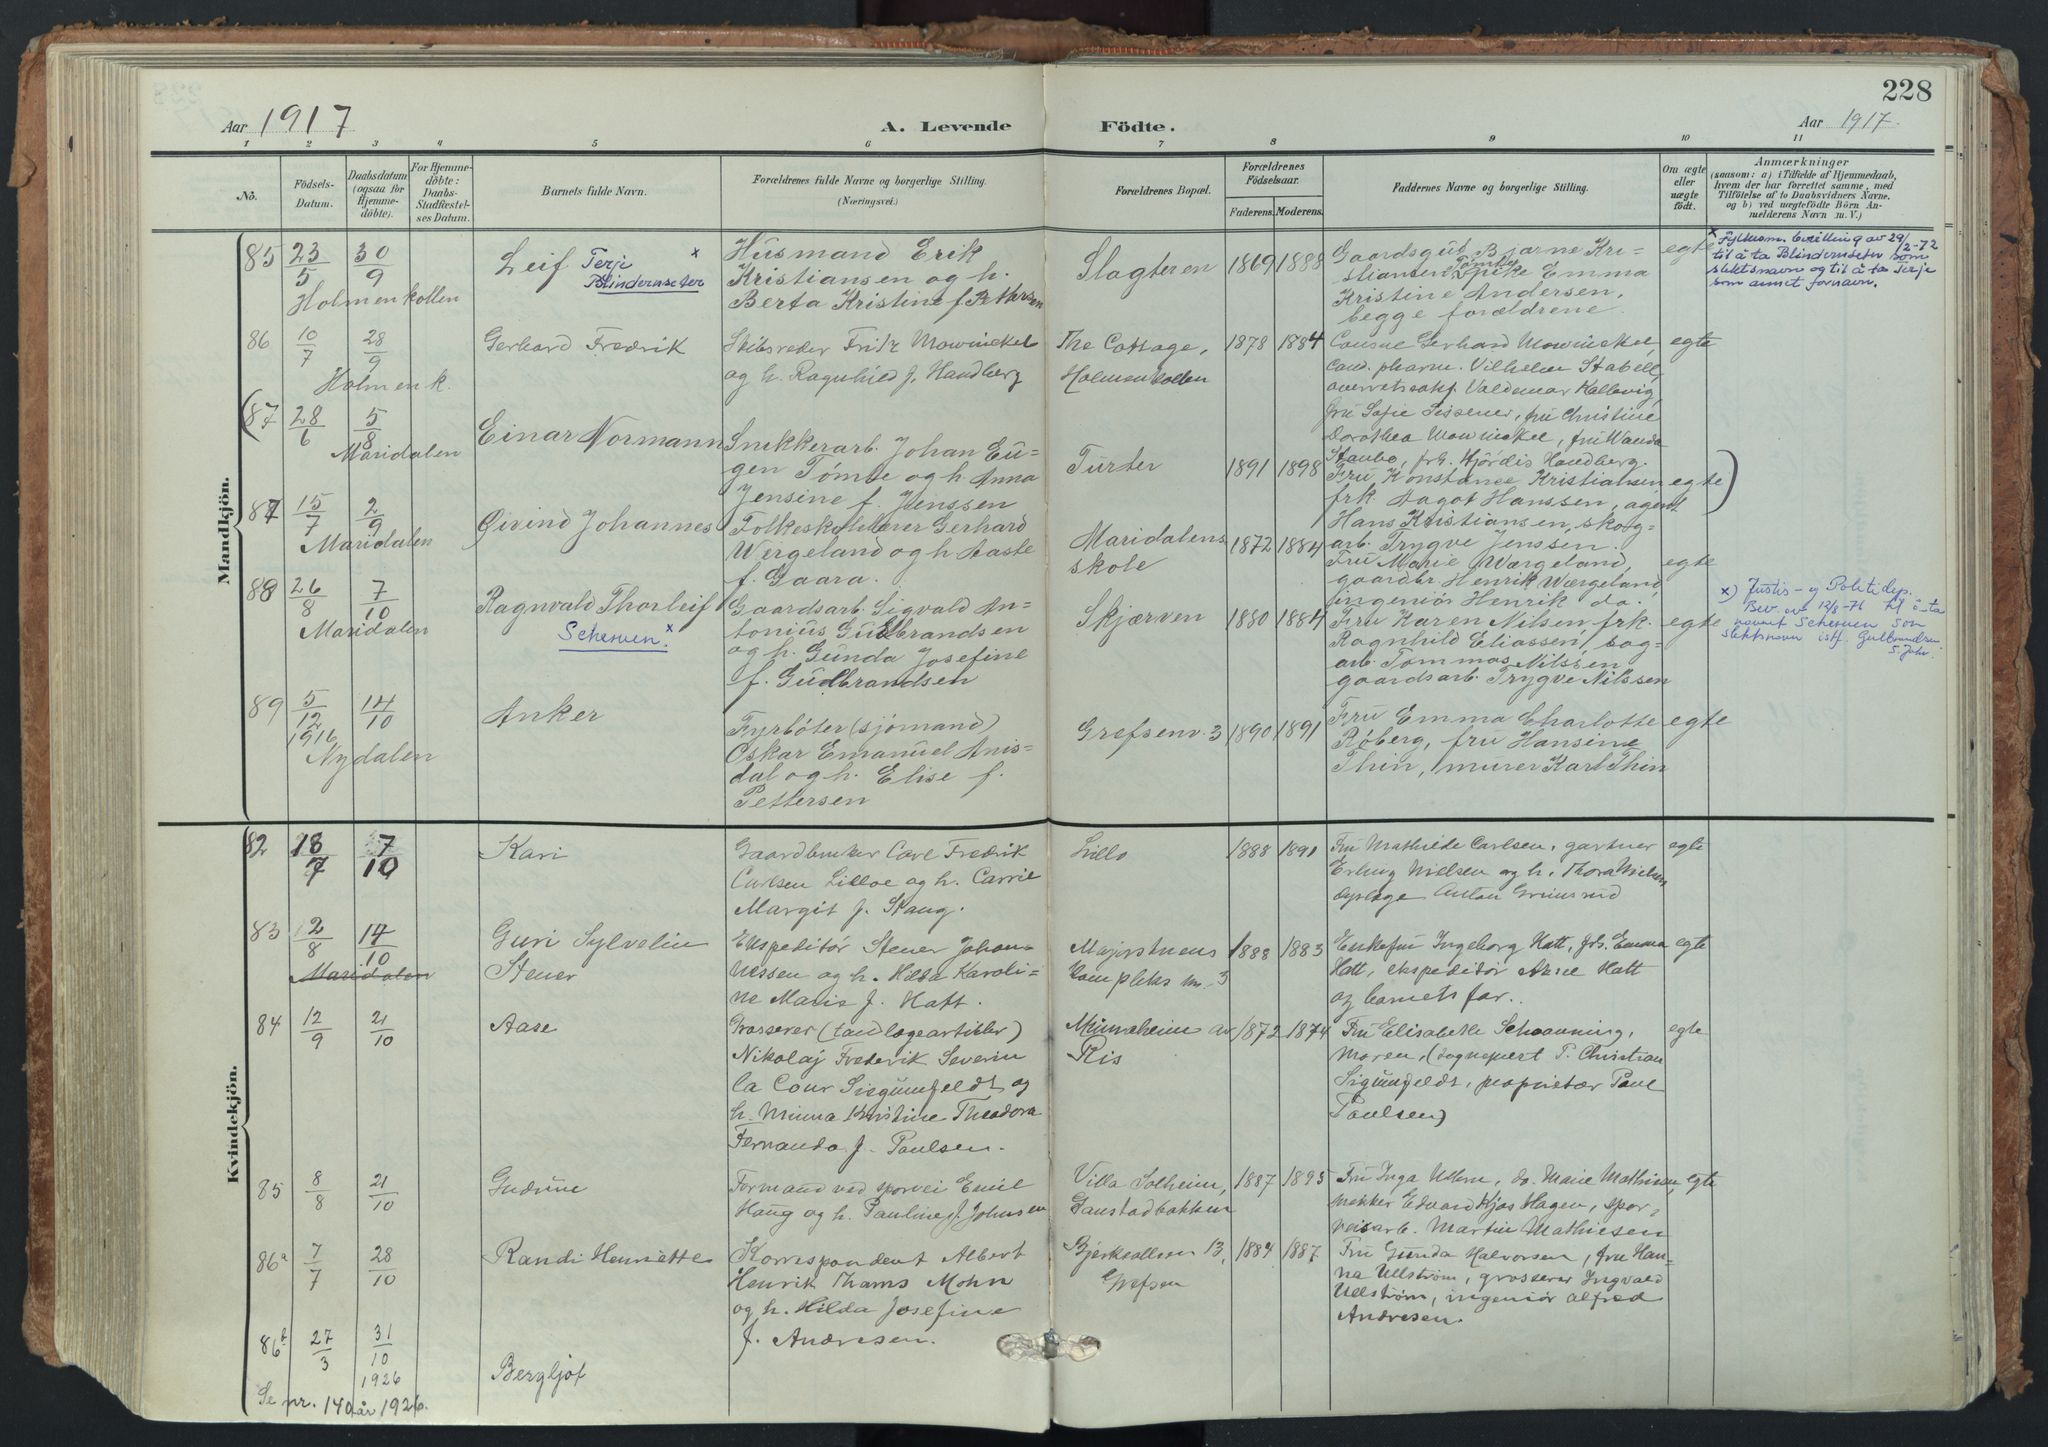 228
Aar 1917
A. Levende Födte.
Aar 1917.
1 2 3 4 5 6 7 8 9 10 11
No.
Födsels-
Datum.
Daabsdatum
(ogsaa for
Hjemme-
döbte).
For Hjemme-
döbte:
Daabs-
Stadfæstel-
ses Datum.
Barnets fulde Navn.
Forældrenes fulde Navne og borgerlige Stilling.
(Næringsvei.)
Forældrenes Bopæl.
Forældrenes
Födselsaar.
Faderens. Moderens.
Faddernes Navne og borgerlige Stilling.
Om ægte
eller
uægte
födt.
Anmærkninger
(saasom: a) i Tilfælde af Hjemmedaab,
hvem der har forrettet samme, med
Tilföielse af to Daabsvidners Navne,
og b) ved uægtefödte Börn An-
melderens Navn m. V.)
Mandkjön.
85 23/5 30/9
Holmenkollen
Leif Terje x
Blindernseter
Husmand Erik
Kristiansen og h.
Berta Kristine f. Pettersen
Slagteren
1869 1888
Gaardsgut Bjarne Kri-
stiansen, Emma
Kristine Andersen,
begge forældrene.
egte
x Fylkesm. bevilling av 29/2-72
til å ta Blindernseter som
slektsnavn og til å ta Terje
som annet fornavn.
86 10/7 28/9
Holmenk.
Gerhard Fredrik
Skibsreder Fritz Mowinckel
og h. Ragnhild f. Handberg
The Cottage,
Holmenkollen
1878 1884
Consul Gerhard Mowinckel,
cand. pharm. Vilhelm Stabell,
overretssakf. Valdemar Kallevig,
fru Sofie Sissener, fru Christine
Dorothea Mowinckel, fru Wanda
Staubo, frk. Hjördis Handberg.
egte
(87 28/6 5/8
Maridalen
Einar Normann
Snikkerarb. Johan Eu-
gen Tømte og h. Anna
Jensine f. Jenssen
Turter
1891 1898
Fru Konstance Kristiansen
frk. Dagot Hanssen, agent
Hans Kristiansen, skog-
arb. Trygve Jenssen.
egte )
87 15/7 2/9
Maridalen
Øivind Johannes
Folkeskolelærer Gerhard
Wergeland og h. Aaste
f. Gaara.
Maridalens
skole
1872 1884
Fru Marie Wærgeland,
gaardbr. Henrik Wærgeland,
ingeniör Henrik do.
egte
88 26/8 7/10
Maridalen
Ragnvald Thorleif
Scherven. x
Gaardsarb. Sigvald An-
tonius Gudbrandsen
og h. Gunda Josefine
f. Gudbrandsen
Skjærven
1880 1884
Fru Karen Nilsen frk.
Ragnhild Eliassen, sag-
arb. Tommas Nilssen
gaardsarb. Trygve Nilssen
egte
x) Justis- og Politidep.
Bev. av 12/8-76 til å ta
navnet Scherven som
slektsnavn istf. Gulbrandsen
89 5/12 1916 14/10
Nydalen
Anker
Fyrbøter (sjømand)
Oskar Emanuel Anis-
dal og h. Elise f.
Pettersen
Grefsenv. 3
1890 1891
Fru Emma Charlotte
Røberg, fru Hansine
Thin, murer Karl Thin
egte
Kvindekjön.
82 18/7 7/10
Kari
Gaardbruker Carl Fredrik
Carlsen Lilloe og h. Carrie
Margit f. Skaug.
Lillo
1888 1890
Fru Mathilde Carlsen, gartner
Erling Nielsen og h. Thora Nielsen
dyrlæge Anton Grimsrud
egte
83 2/8 14/10
Maridalen
Guri Sylvelin
Stener
Ekspeditör Stener Johan-
nessen og h. Hilda Karoli-
ne Marie f. Hatt.
Majorstuens
kompleks nr. 3
1888 1883
Enkefru Ingeborg Hatt, frk. Emma
Hatt, ekspeditör Aksel Hatt
og barnets far.
egte
84 12/9 21/10
Aase
Grosserer (tandlægeartikler)
Nikolaj Frederik Severin
la Cour Sigumfeldt og
h. Minna Kristine Theodora
Fernanda f. Paulsen.
Minnaheim av
Ris
1872 1874
Fru Elisabeth Schønning,
moren, (sogneprest P. Christian
Sigumfeldt, proprietær Paul
Paulsen)
egte
85 8/8 21/10
Gudrun
Formand ved sporvei Emil
Haug og h. Pauline f. Johnsen
Villa Solheim,
Gaustadbakken
1887 1895
Fru Inga Ullern, do. Marie Mathisen,
snekker Edvard Kjos Hagen, spor-
veisarb. Martin Mathiesen
egte
86a 7/7 28/10
Randi Henriette
Korrespondent Albert
Henrik Thams Mohn
og h. Hilda Josefine
f. Andresen.
Bjerkealleen 13,
Grefsen
1884 1887
Fru Gunda Halvorsen, fru Han-
na Ullström, grosserer Ingvald
Ullström, ingeniör Alfred
Andresen.
86b 27/3 31/10 1926
Bergljot
Se nr. 140 år 1926.